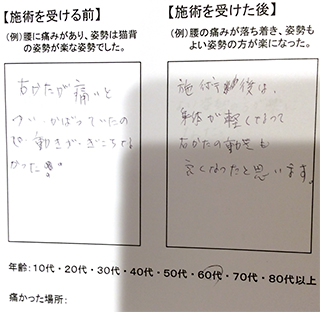 【施術を受ける前】
(例)腰に痛みがあり、姿勢は猫背
の姿勢が楽な姿勢でした。
右かたが痛いと
つい・かばっていたの
で・動きが・ぎこちな
かった
【施術を受けた後】
(例)腰の痛みが落ち着き、姿勢も
よい姿勢の方が楽になった。
施術後は、
身体が軽くなって
右かたの動きも
良くなったと思います。
年齢:10代・20代・30代・40代・50代・60代・70代・80代以上
痛かった場所: